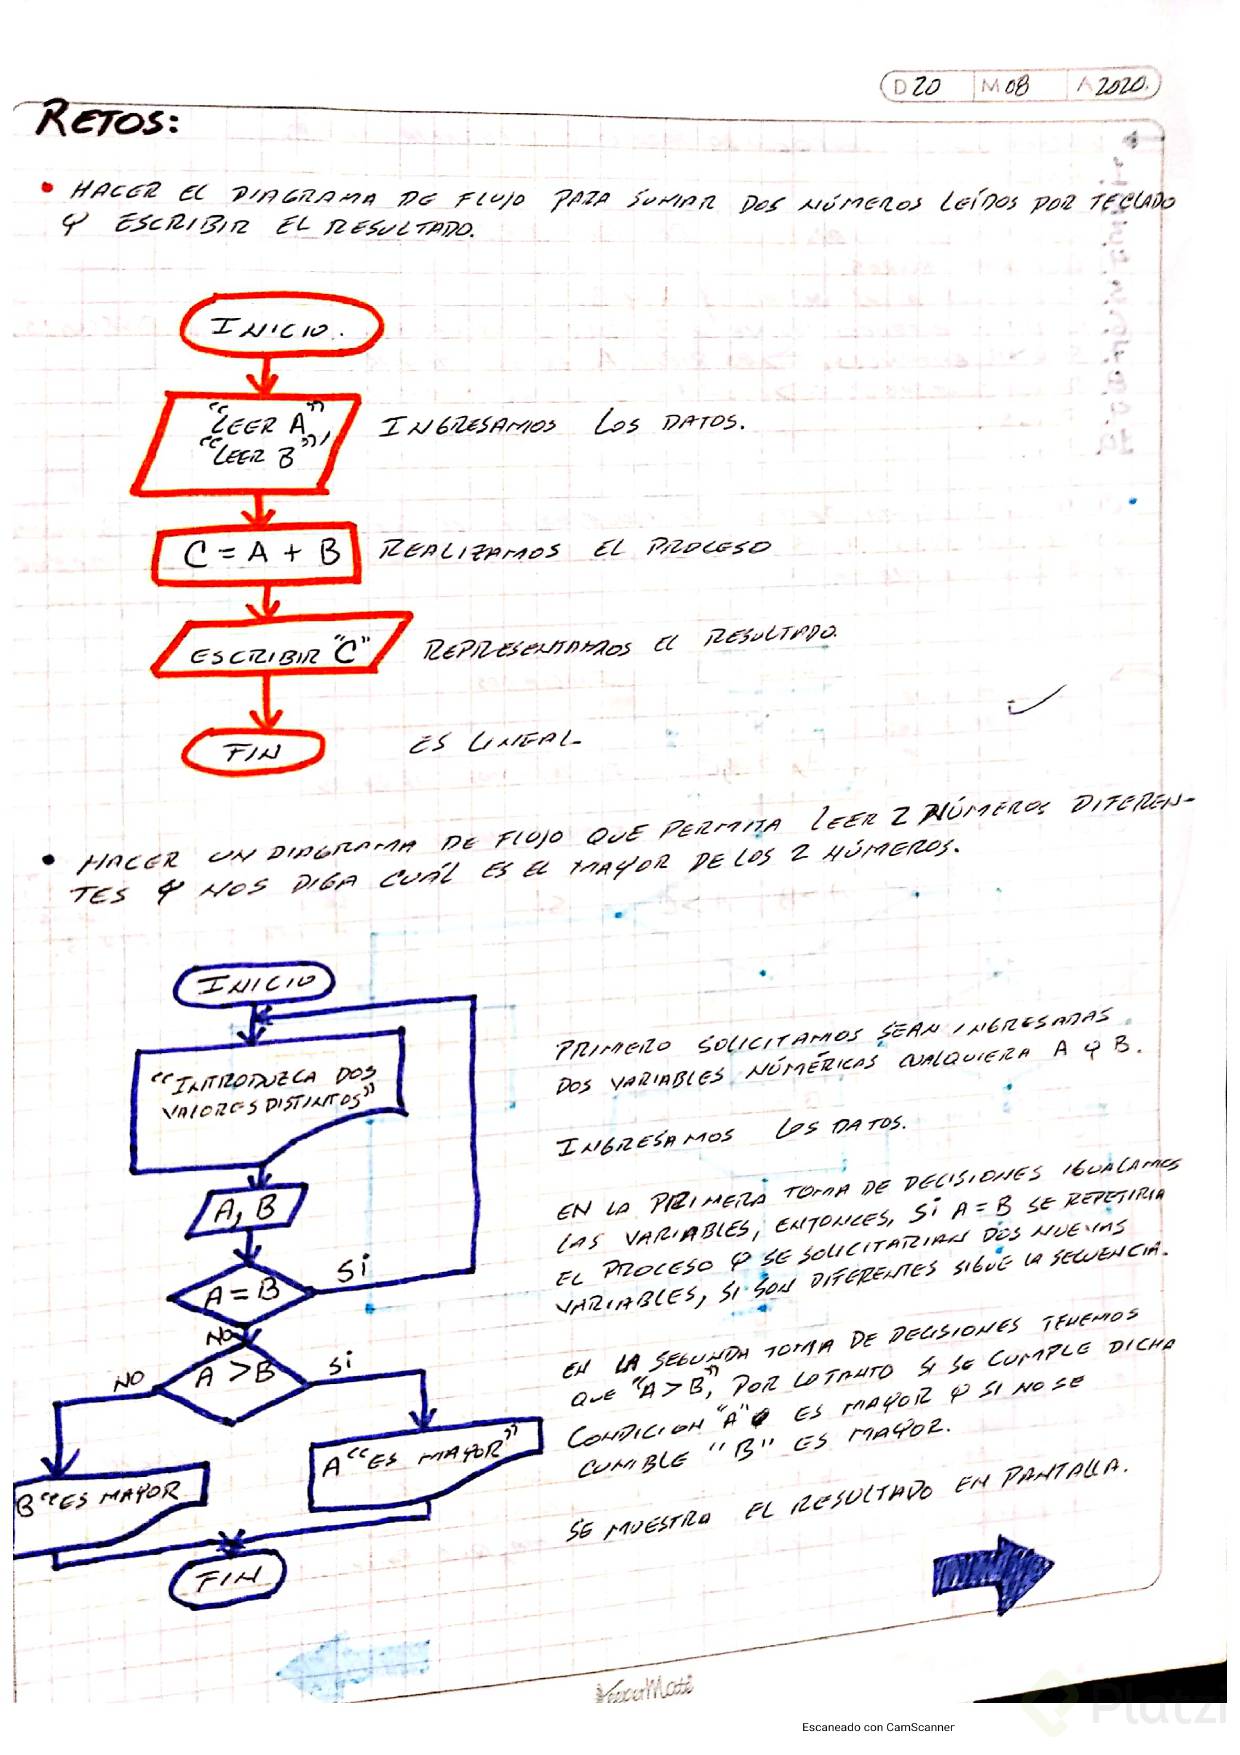 D 20 M 08 A 2020.
RETOS:
• HACER EL DIAGRAMA DE FLUJO PARA SUMAR DOS NÚMEROS LEÍDOS POR TECLADO
Y ESCRIBIR EL RESULTADO.
INICIO.
"LEER A",
"LEER B"
INGRESAMOS LOS DATOS.
C = A + B
REALIZAMOS EL PROCESO
ESCRIBIR "C"
REPRESENTAMOS EL RESULTADO.
FIN
ES LINEAL.
• HACER UN DIAGRAMA DE FLUJO QUE PERMITA LEER 2 NÚMEROS DIFEREN-
TES Y NOS DIGA CUÁL ES EL MAYOR DE LOS 2 NÚMEROS.
INICIO
"INTRODUZCA DOS
VALORES DISTINTOS"
A, B
A = B
SI
NO
A > B
NO
SI
B "ES MAYOR
A "ES MAYOR"
FIN
PRIMERO SOLICITAMOS SEAN INGRESADAS
DOS VARIABLES NÚMÉRICAS CUALQUIERA A Y B.
INGRESAMOS LOS DATOS.
EN LA PRIMERA TOMA DE DECISIONES IGUALAMOS
LAS VARIABLES, ENTONCES, SI A = B SE REPETIRIA
EL PROCESO Y SE SOLICITARIAN DOS NUEVAS
VARIABLES, SI SON DIFERENTES SIGUE LA SECUENCIA.
EN LA SEGUNDA TOMA DE DECISIONES TENEMOS
QUE "A > B", POR LO TANTO SI SE CUMPLE DICHA
CONDICION "A" ES MAYOR Y SI NO SE
CUMBLE "B" ES MAYOR.
SE MUESTRA EL RESULTADO EN PANTALLA.
KeeperMate
Platzi
Escaneado con CamScanner